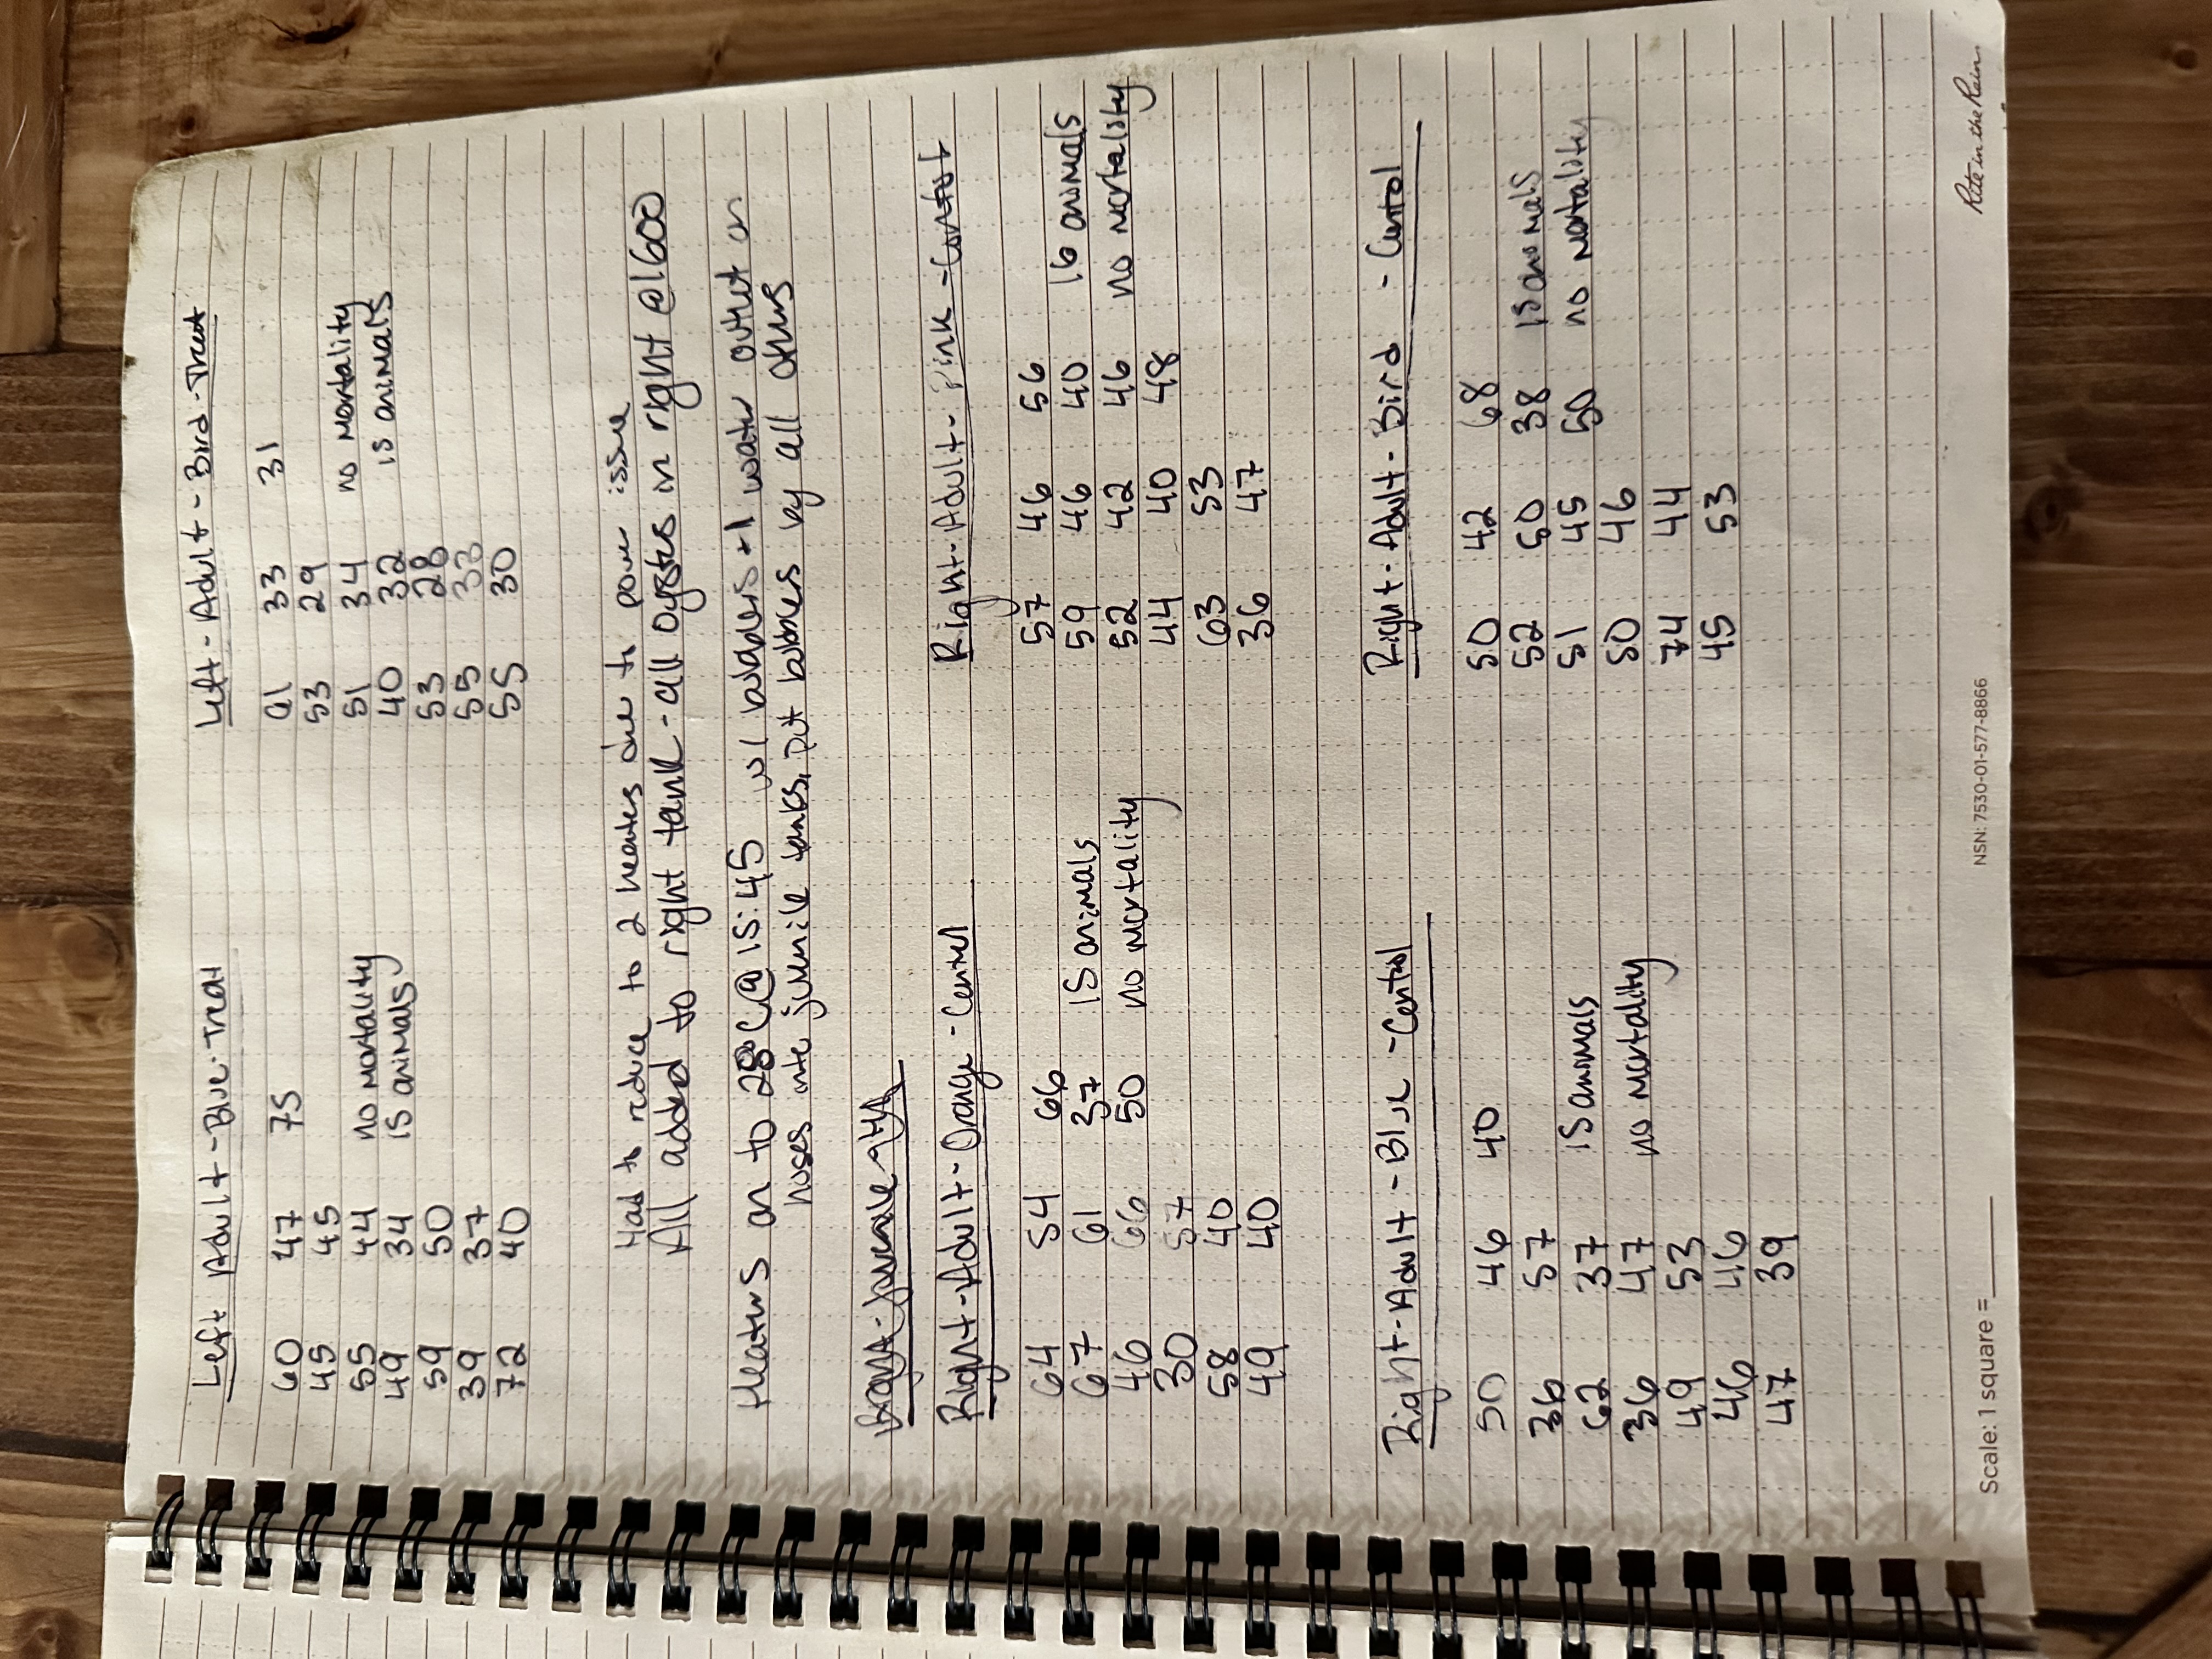 Left Adult - Blue - Treat
60 47 75
45 45
55 44 no mortality
49 34 15 animals
59 50
39 37
72 40
Left - Adult - Bird - Treat
61 33 31
53 29
51 34 no mortality
40 32 15 animals
53 28
55 33
55 30
Had to reduce to 2 heaters due to power issue
All added to right tank - all oysters in right @1600
Heaters on to 28°C @ 15:45 w/ bubblers + 1 water outlet on
hoses into juvenile tanks, put bubblers by all others
Right - Juvenile -
Right - Adult - Orange - Control
64 54 66
67 61 37 15 animals
46 66 50 no mortality
30 57
58 40
49 40
Right - Adult - Pink - Control
57 46 56
59 46 40 16 animals
52 42 46 no mortality
44 40 48
63 53
36 47
Right - Adult - Blue - Control
50 46 40
36 57
62 37 15 animals
36 47 no mortality
49 53
46 46
47 39
Right - Adult - Bird - Control
50 42 68
52 50 38 15 animals
51 45 50 no mortality
50 46
74 44
45 53
Scale: 1 square =______
NSN: 7530-01-577-8866
Rite in the Rain